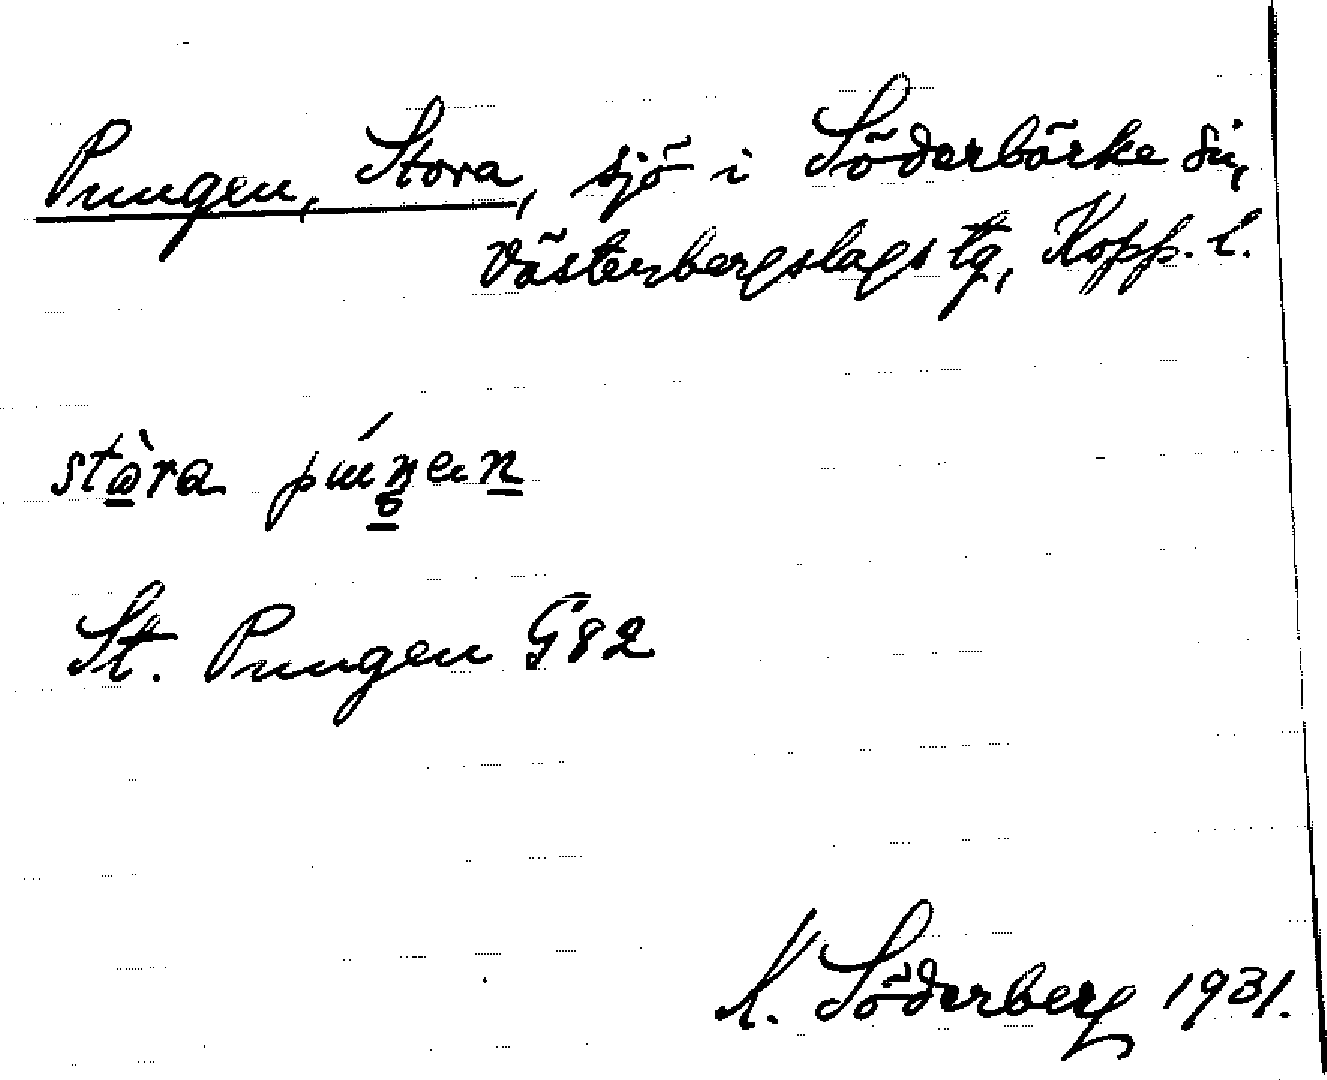 Pungen, Stora, sjö i Söderbärke sn,
Västerbergslags tg, Kopp. l.
stòra
St. Pungen G82
K. Söderberg 1931.